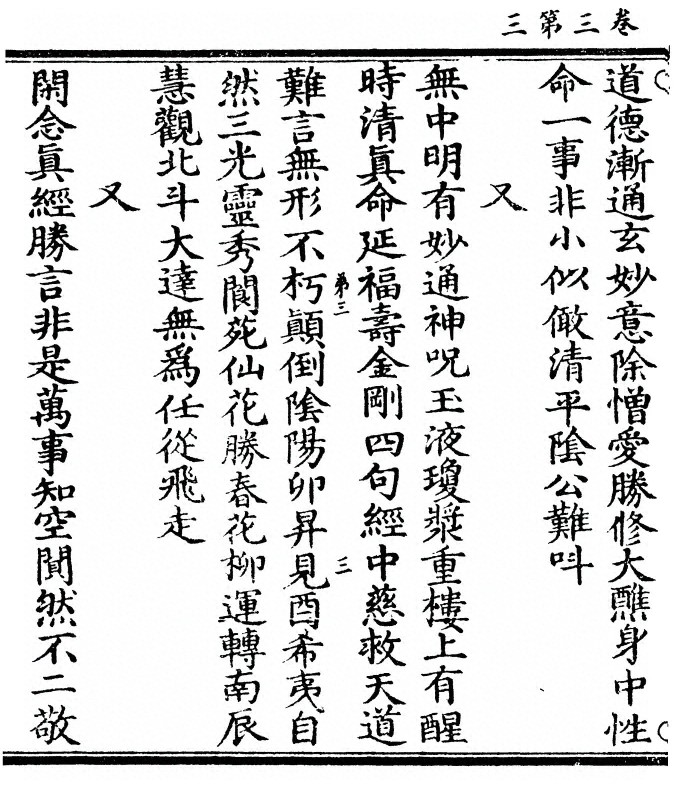 三第三卷
道德漸通玄妙意除憎愛勝修大醮身中性
命一事非小似儆清平陰公難呌
又
無中明有妙通神呪玉液瓊漿重樓上有醒
時清眞命延福壽金剛四句經中慈救天道
第三
難言無形不朽顚倒陰陽卯昇見酉希夷自
三
然三光靈秀閬苑仙花勝春花柳運轉南辰
慧觀北斗大達無爲任從飛走
又
閑念眞經勝言非是萬事知空閴然不二敬